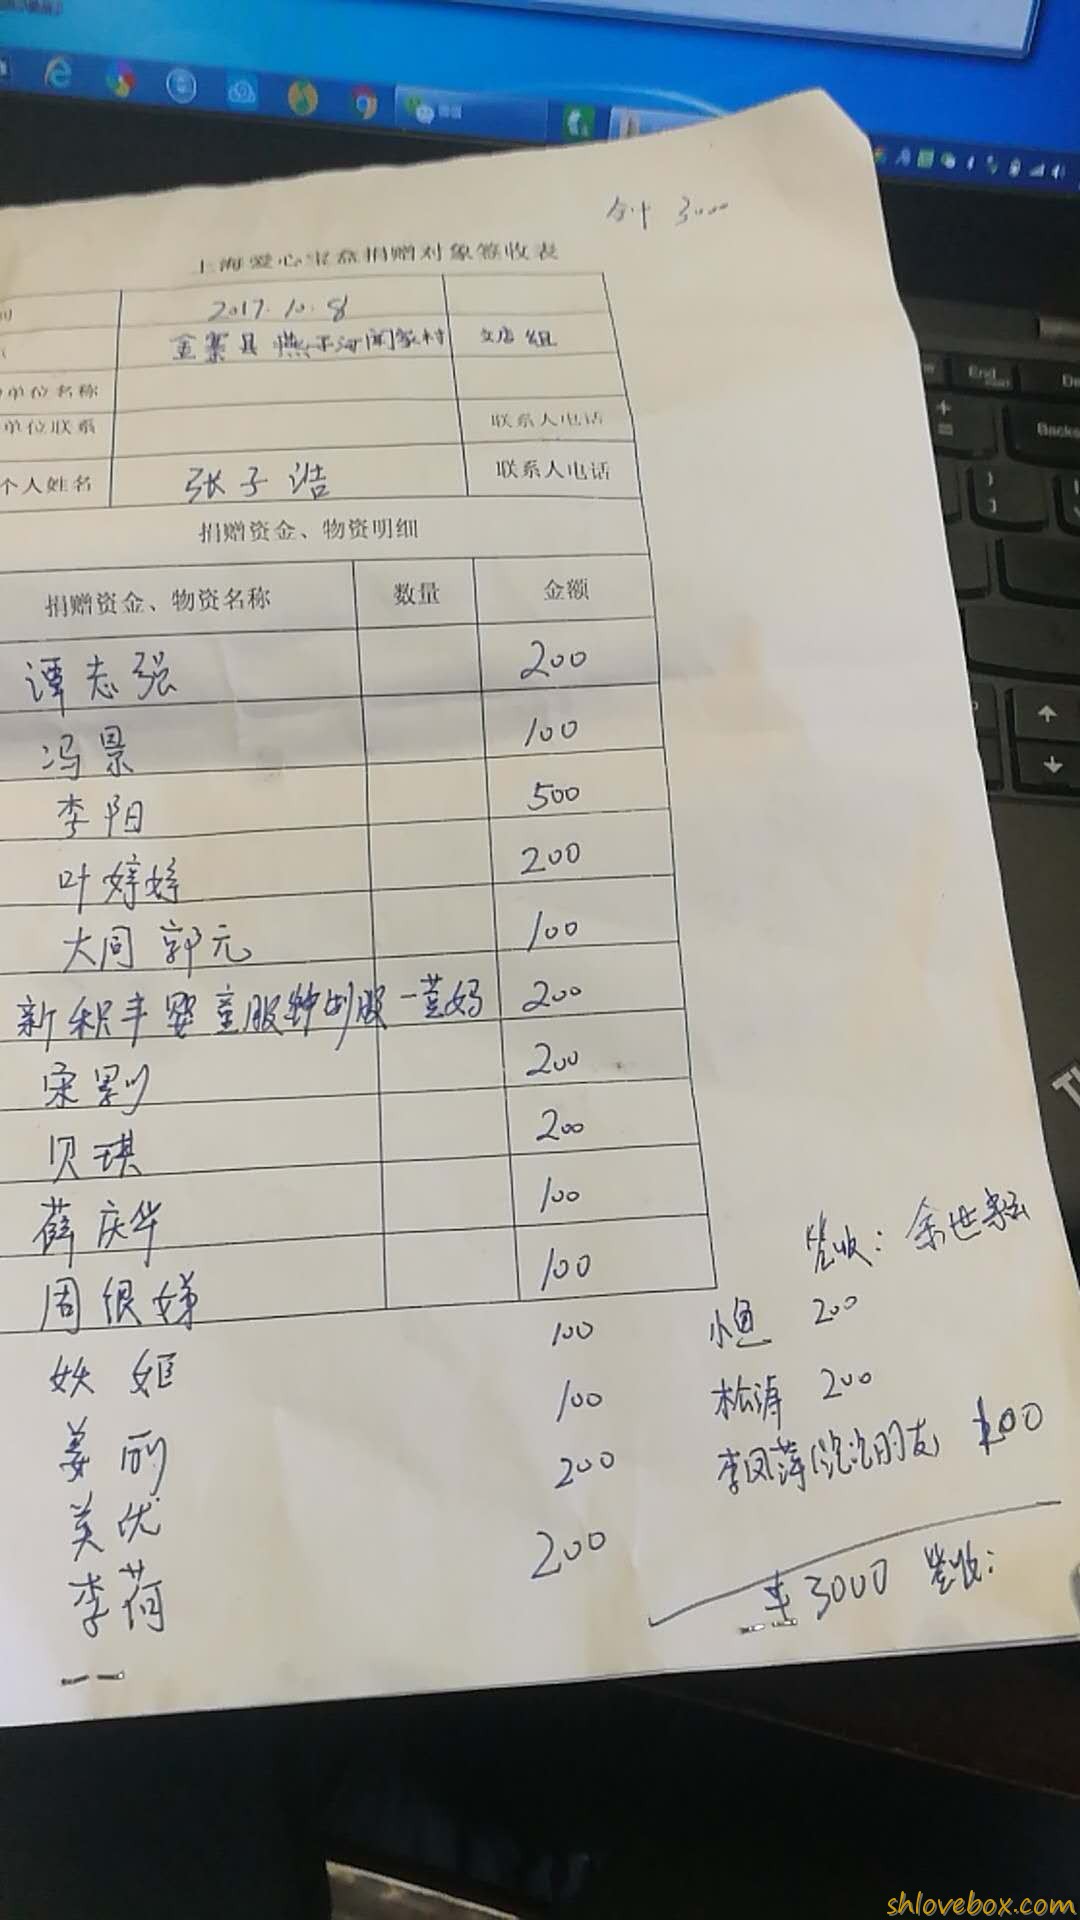 合计 3000
上海爱心宝盒捐赠对象签收表
2017.10.8
金寨县 燕子河闻家村 文店组
单位名称
单位联系 联系人电话
个人姓名 张子浩 联系人电话
捐赠资金、物资明细
捐赠资金、物资名称 数量 金额
谭志强 200
冯景 100
李阳 500
叶婷婷 200
大同 郭元 100
新积丰婴童服饰 一莒妈 200
宋 200
贝琪 200
薛庆华 100
周银娣 100
妖姬 100
姜丽 100
美优 200
李荷 200
签收: 余世
小鱼 200
松涛 200
李凤萍(沱沱朋友) 100
¥3000 签收:
End
Backs
shlovebox.com